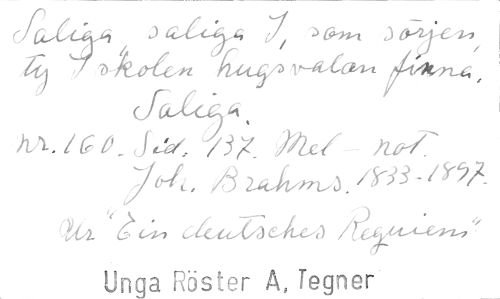 Saliga saliga I, som sörjen,
ty I skolen hugsvalan finna.
Saliga.
nr. 160. Sid. 137. Mel - not.
Joh. Brahms. 1833-1897.
Ur "Ein deutsches Requiem"
Unga Röster A, Tegner